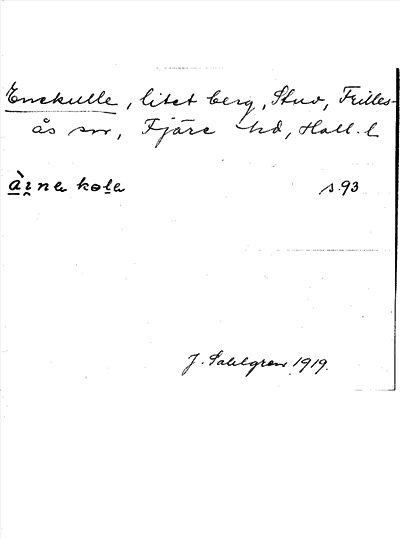 Enekulle, litet berg, Stuv, Frilles-
ås sn, Fjäre hd, Hall. l
s. 93
J. Sahlgren 1919.